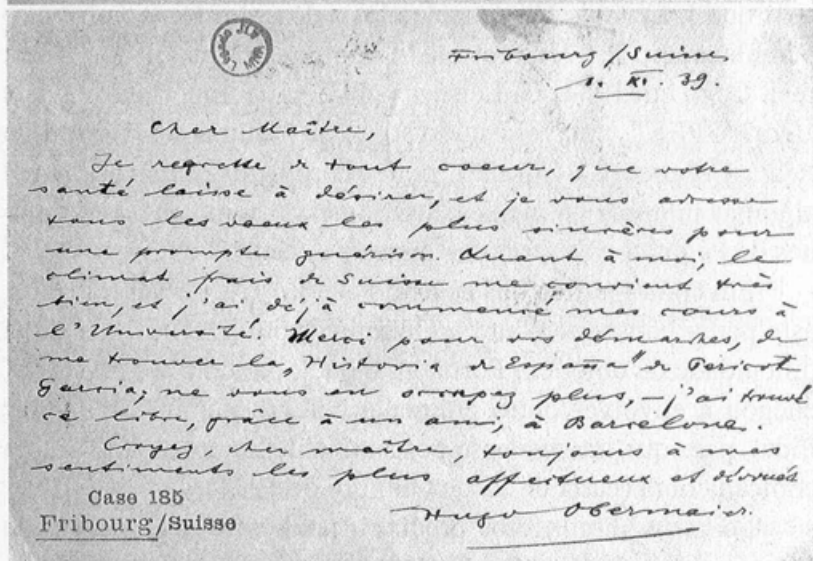 Fribourg/Suisse
1. XI. 39.
Cher Maître,
Je regrette de tout coeur, que votre
santé laisse à désirer, et je vous adresse
tous les voeux les plus sincères pour
une prompte guérison. Quant à moi, le
climat frais de Suisse me convient très
bien, et j'ai déjà commencé mes cours à
l'Université. Merci pour vos démarches, de
me trouver la „Historia de España" de Pericot
Garcia; ne vous en occupez plus, – j'ai trouvé
ce libre, grâce à un ami, à Barcelone.
Croyez, cher maître, toujours à mes
sentiments les plus affectueux et dévoués
Hugo Obermaier.
Case 185
Fribourg/Suisse